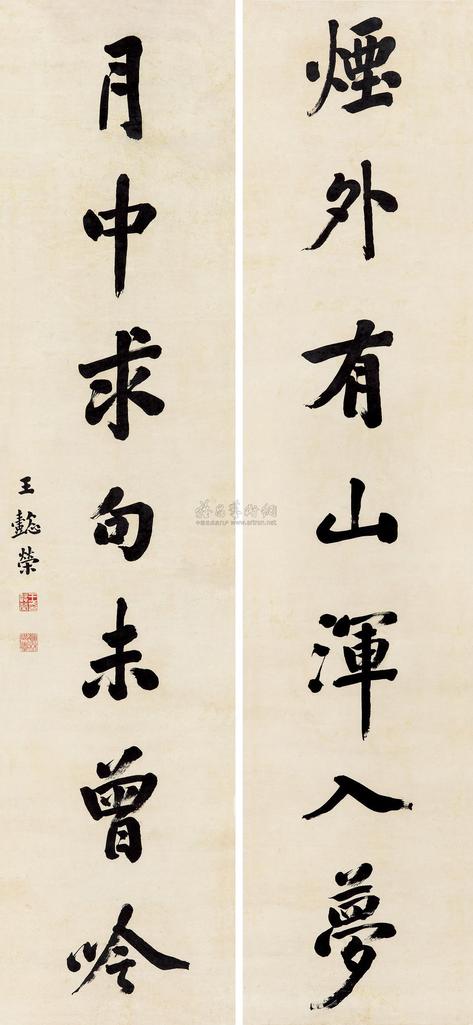 煙外有山渾入夢
月中求句未曾吟
王懿榮
www.artron.net